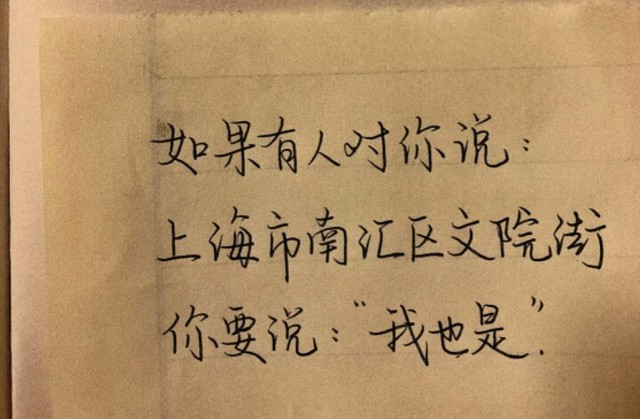 如果有人对你说：
上海市南汇区文院街
你要说：“我也是”．